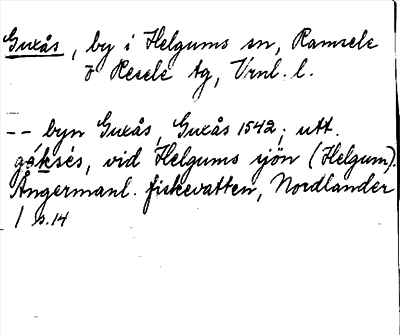 Guxås, by i Helgums sn, Ramsele
o Resele tg, Vrnl. l.
-- byn Guxås, Guxås 1542; utt.
gǻksės, vid Helgums sjön (Helgum).
Ångermanl. fiskevatten, Nordlander
1 s. 14